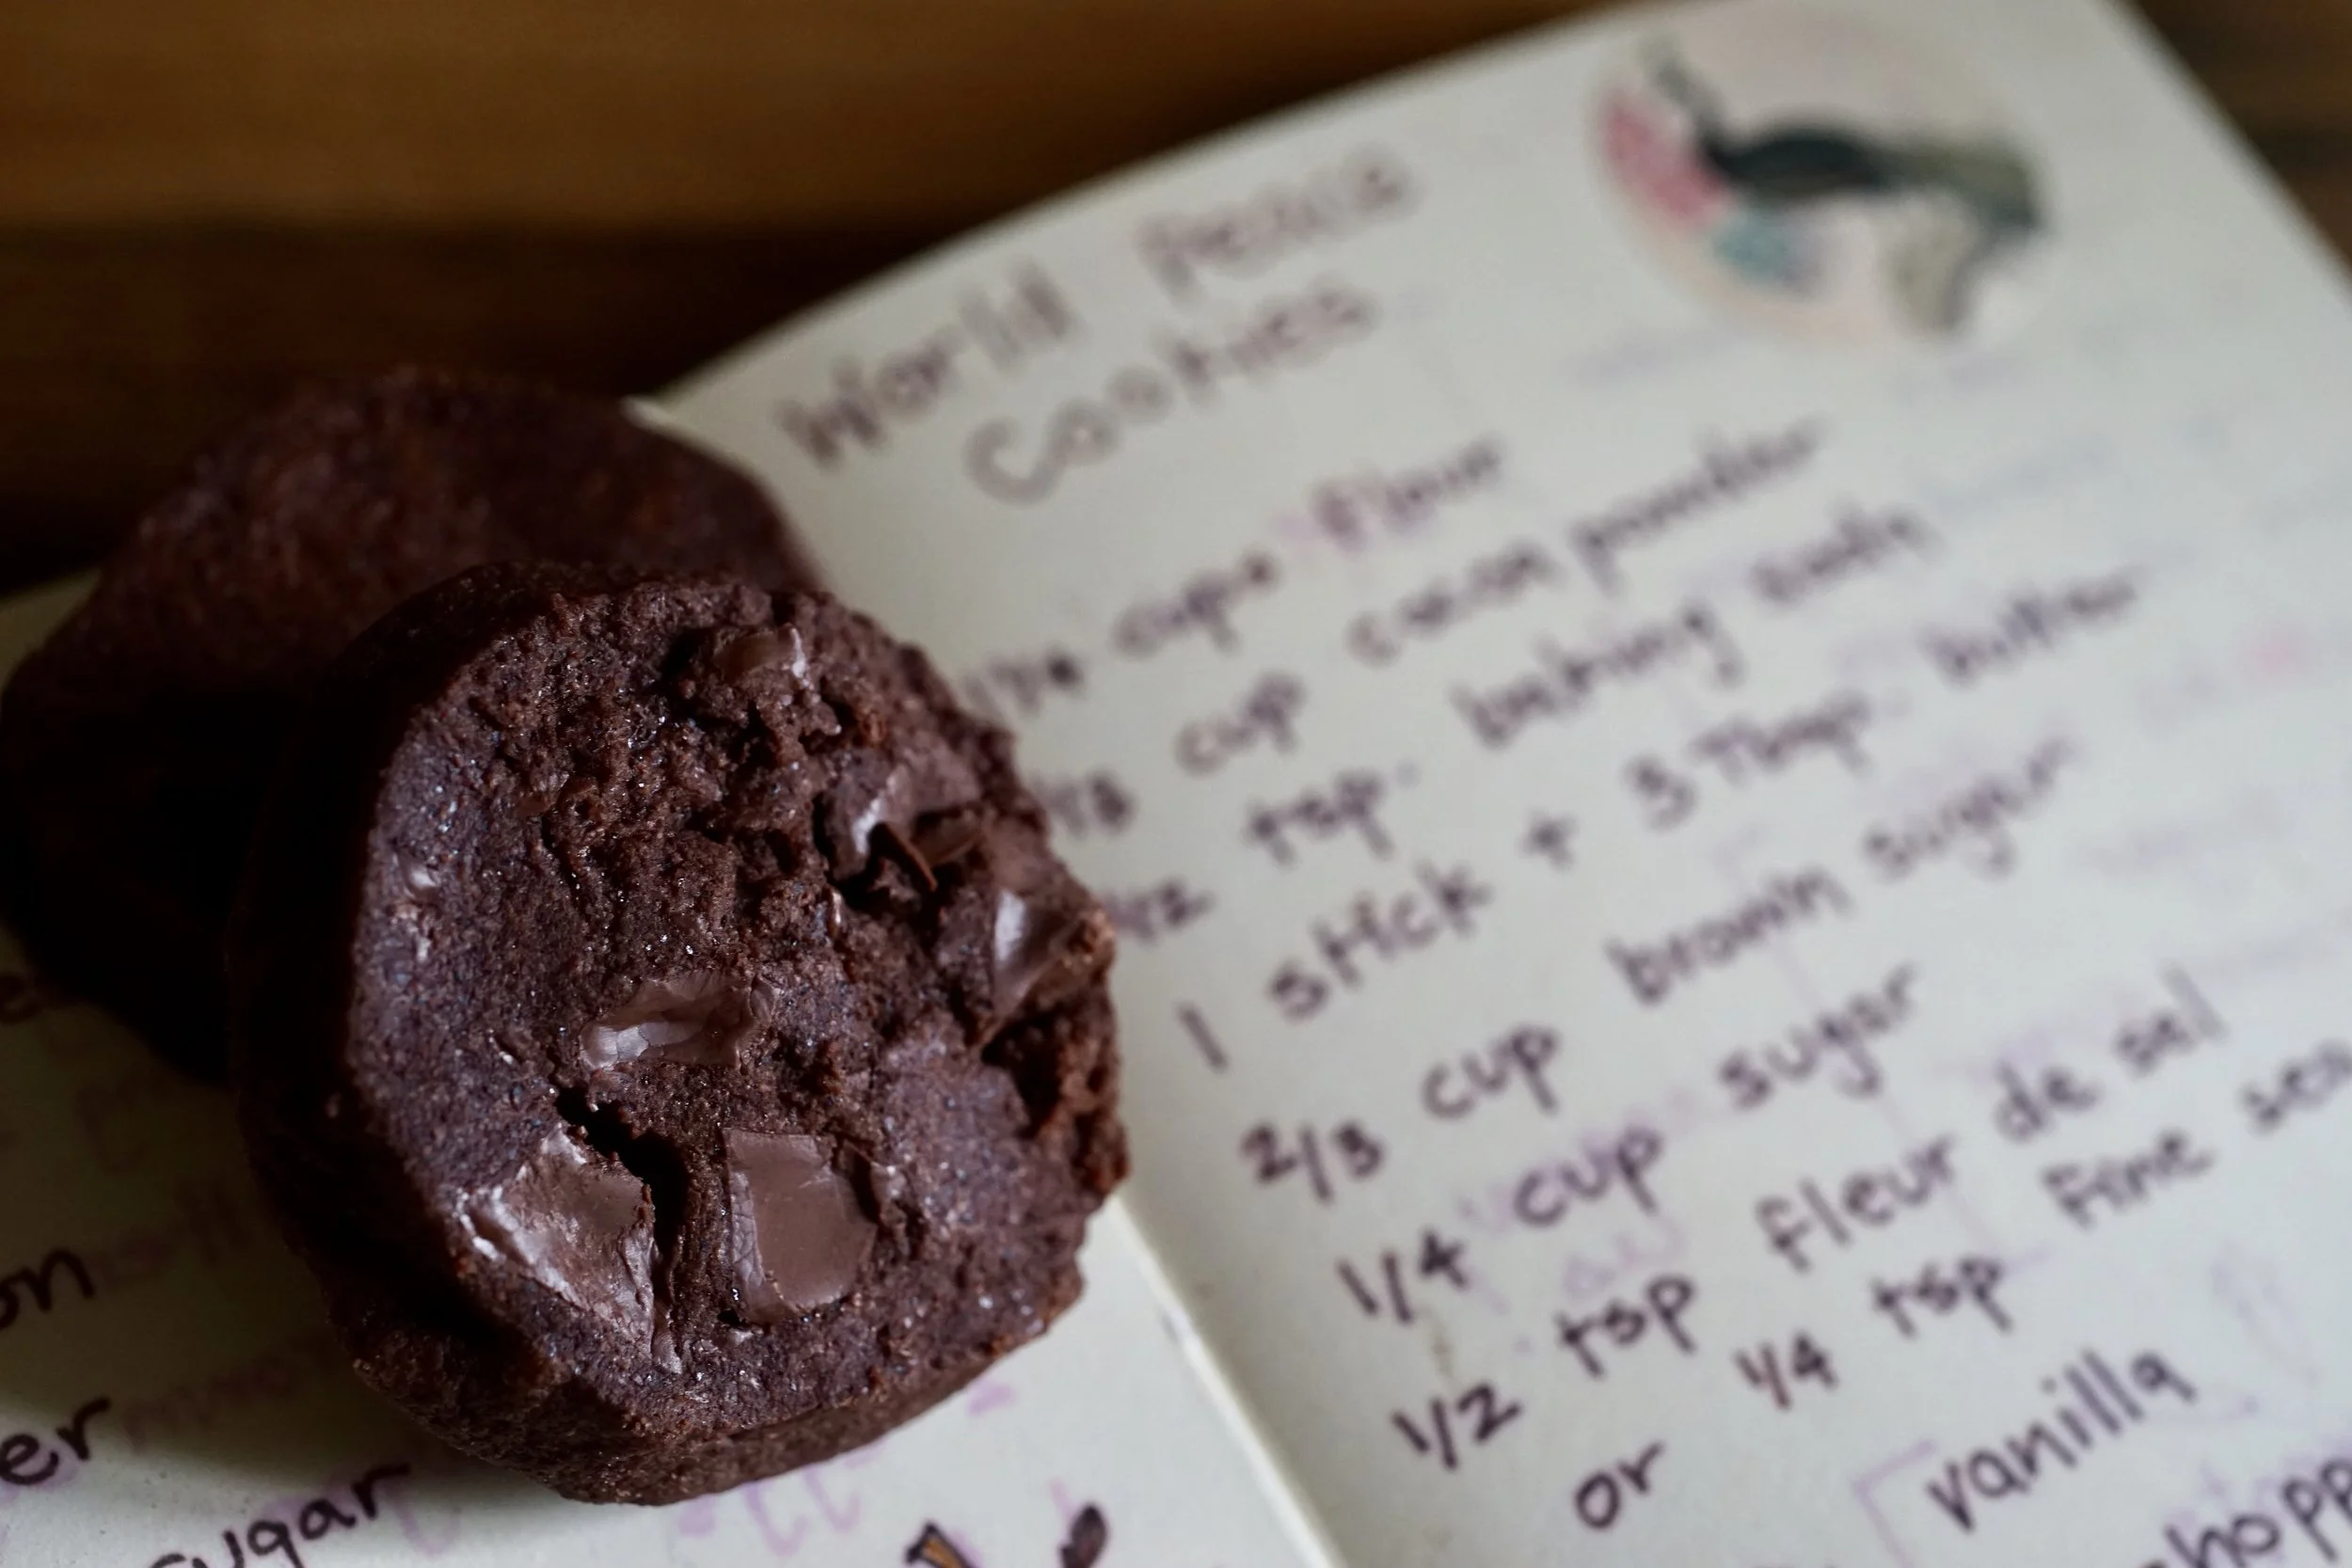 World Peace
Cookies
1 1/4 cups flour
1/3 cup cocoa powder
1/2 tsp. baking soda
1 stick + 3 Tbsp. butter
2/3 cup brown sugar
1/4 cup sugar
1/2 tsp fleur de sel
or 1/4 tsp fine sea
vanilla
hopp
on
er
sugar